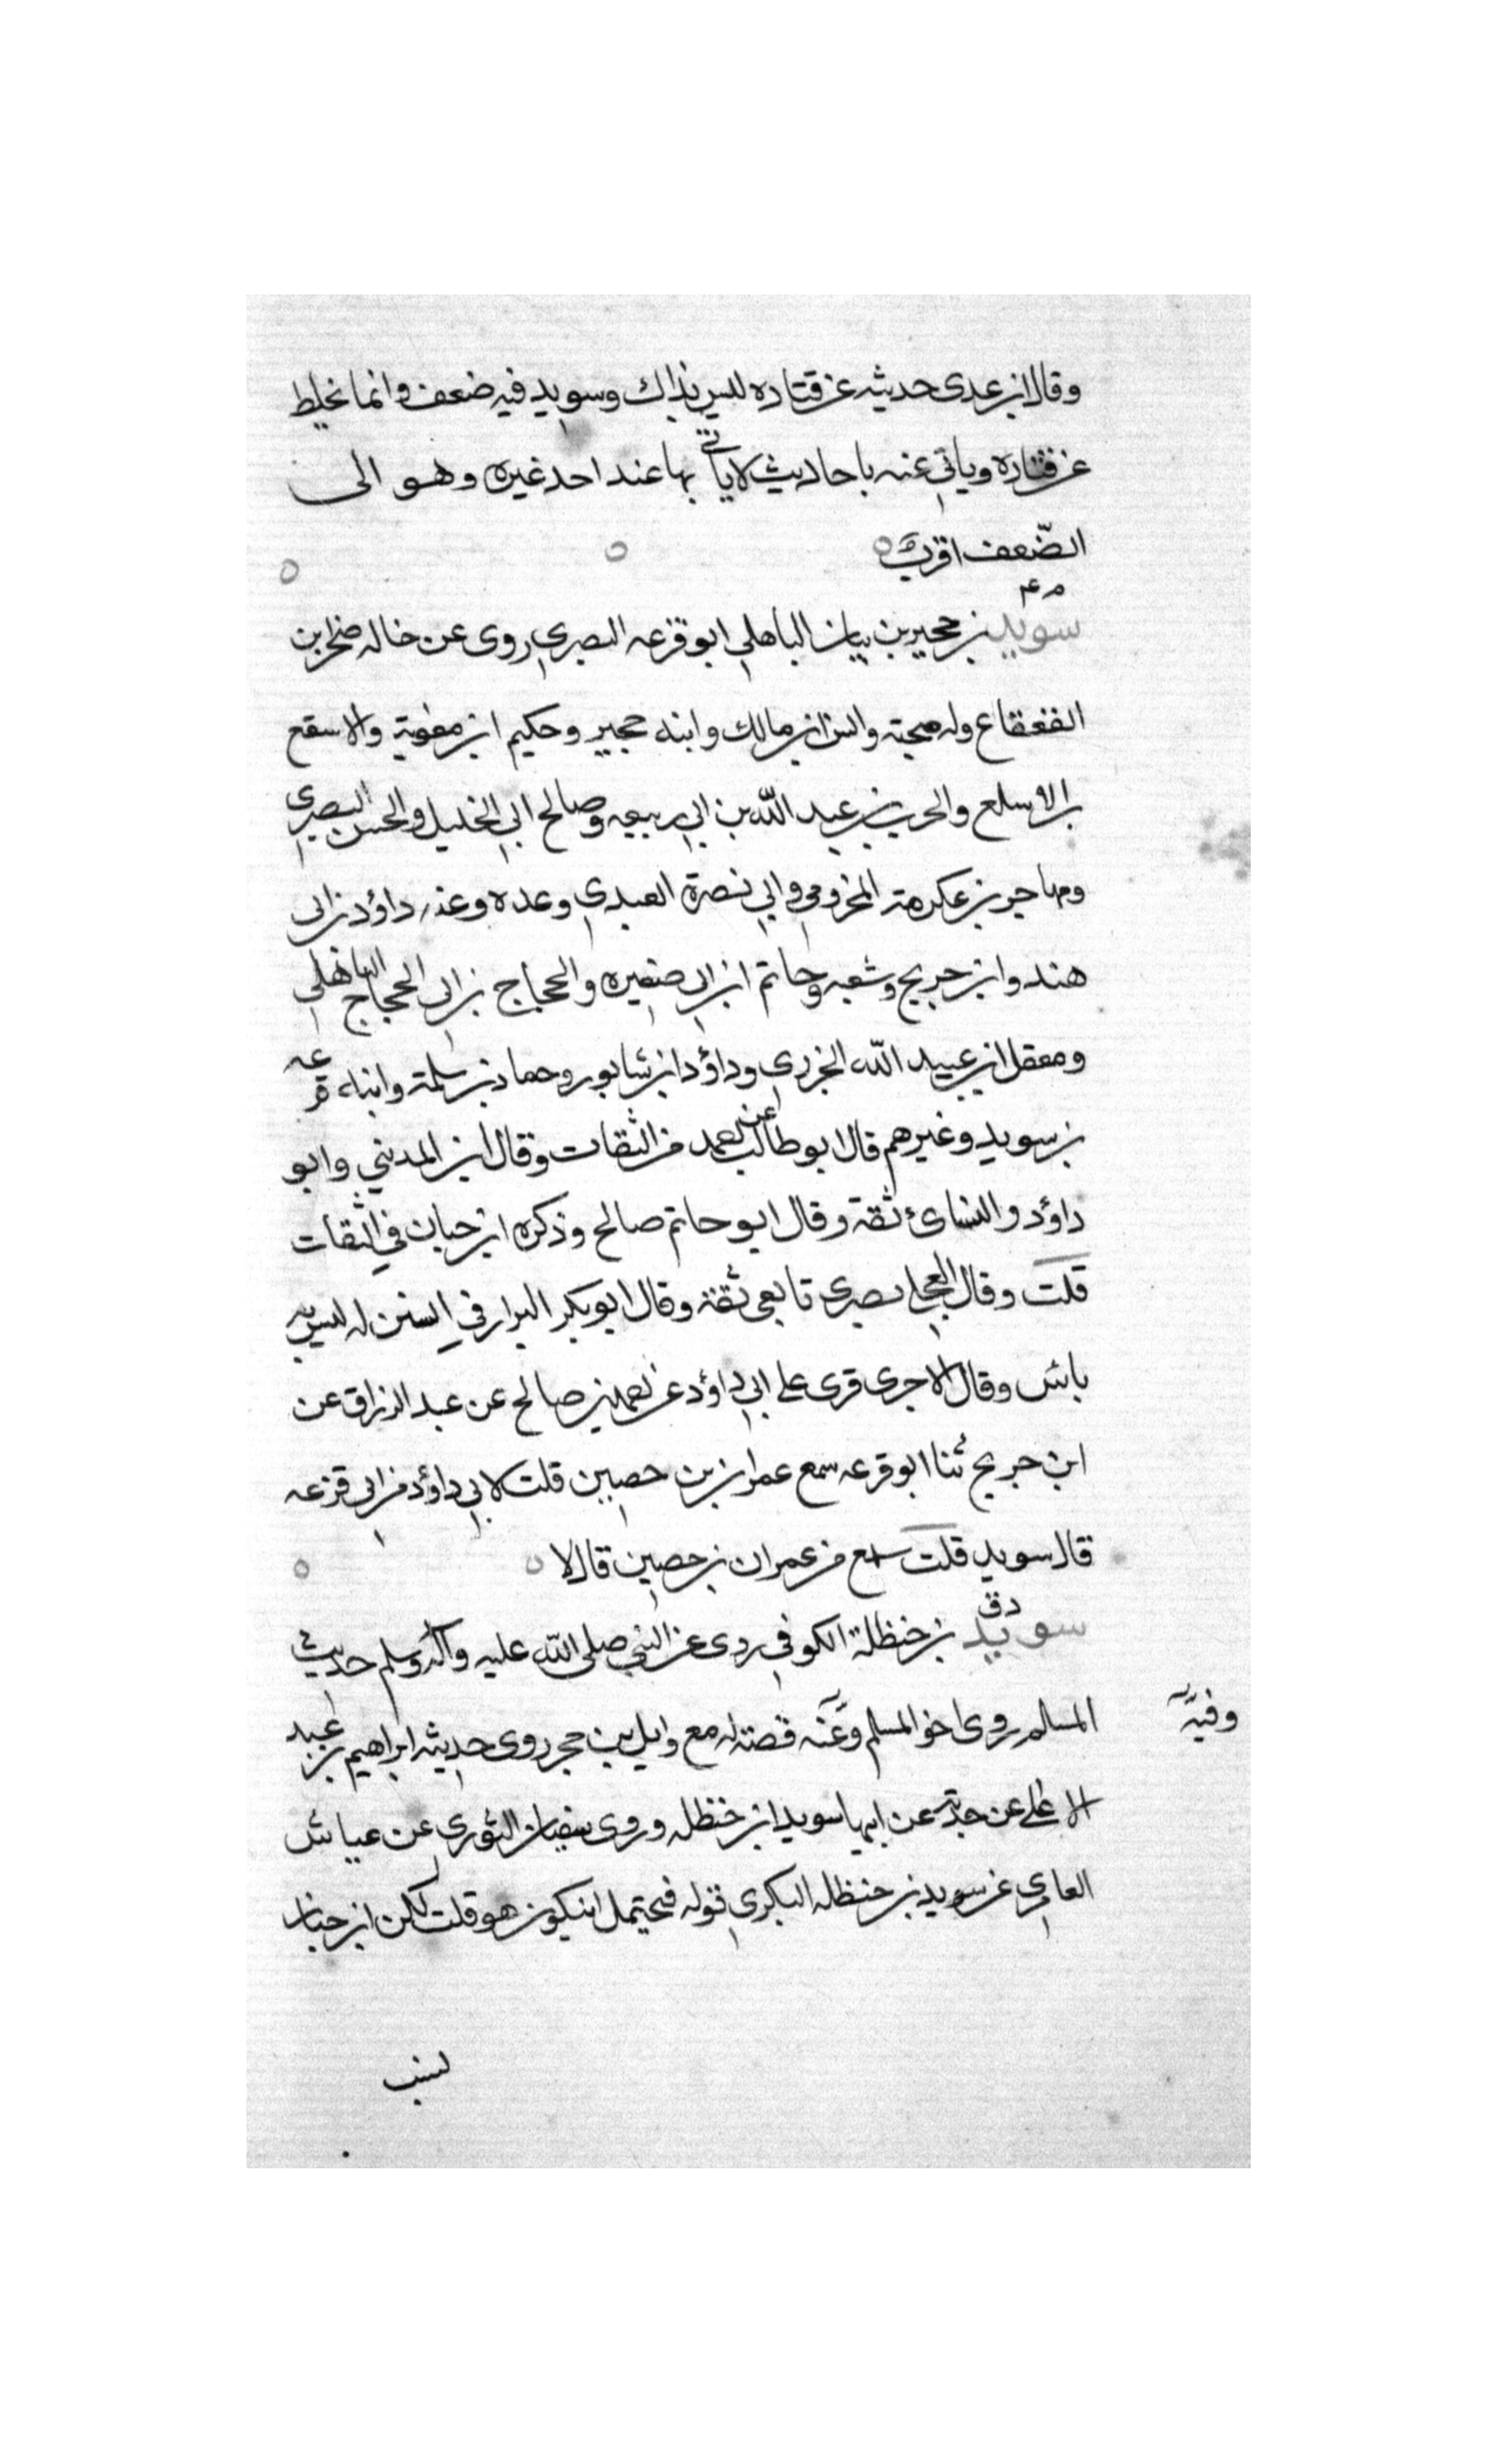 وقال ابن عدى حديثه عن قتاده ليس بذاك وسويد فيه ضعف وانما يخلط
عن قتاده وياتي عنه باحاديث لا ياتي بها عند احد غيره وهو الى
الضّعف اقرب
م ٤
سويد بن حجير بن بيان الباهلي ابو قزعه البصري روى عن خاله صخر بن
القعقاع وله صحبته وانس ابن مالك وابنه حجير وحكيم ابن معوية والاسقع
بن الاسلع والحرث بن عبد الله بن ابي ربيعه وصالح ابي الخليل والحسن البصري
ومهاجر بن عكرمة المخزومي وابي نصرة العبدي وعده وعنه داؤد بن ابى
هند وابن جريج وشعبه وحاتم ابن ابي صغيره والحجاج بن ابى الحجاج الباهلي
ومعقل ابن عبيد الله الخزرى وداؤد ابن شابور وحماد بن سلمة وابناه قزعه
بن سويد وغيرهم قال ابو طالب عن احمد من الثقات وقال ابن المديني وابو
داؤد والنسائ ثقة وقال ابو حاتم صالح وذكره ابن حبان في الثقات
قلت وقال العجلي بصرى تابعى ثقة وقال ابو بكر البزار في السنن له ليس به
بائس وقال الاجرى قرى على ابي داؤد عن احمد بن صالح عن عبد الرزاق عن
ابن جريج ثنا ابو قزعه سمع عمران بن حصين قلت لابي داؤد من ابى قزعه
قال سويد قلت سمع من عمران بن حصين قال لا
د ق
سويد بن حنظلة الكوفي روى عن النبي صلى الله عليه وآله وسلم حديث
المسلم روى اخو المسلم وعنه قصته له مع وايل بن حجر روى حديثه ابراهيم بن عبد
وفيه
الاعلى عن جدته عن ابيها سويد ابن حنظله وروى سفيان الثورى عن عياش
العامرى عن سويد بن حنظله البكرى قوله فيحتمل ان يكون هو قلت لكن ابن حبان